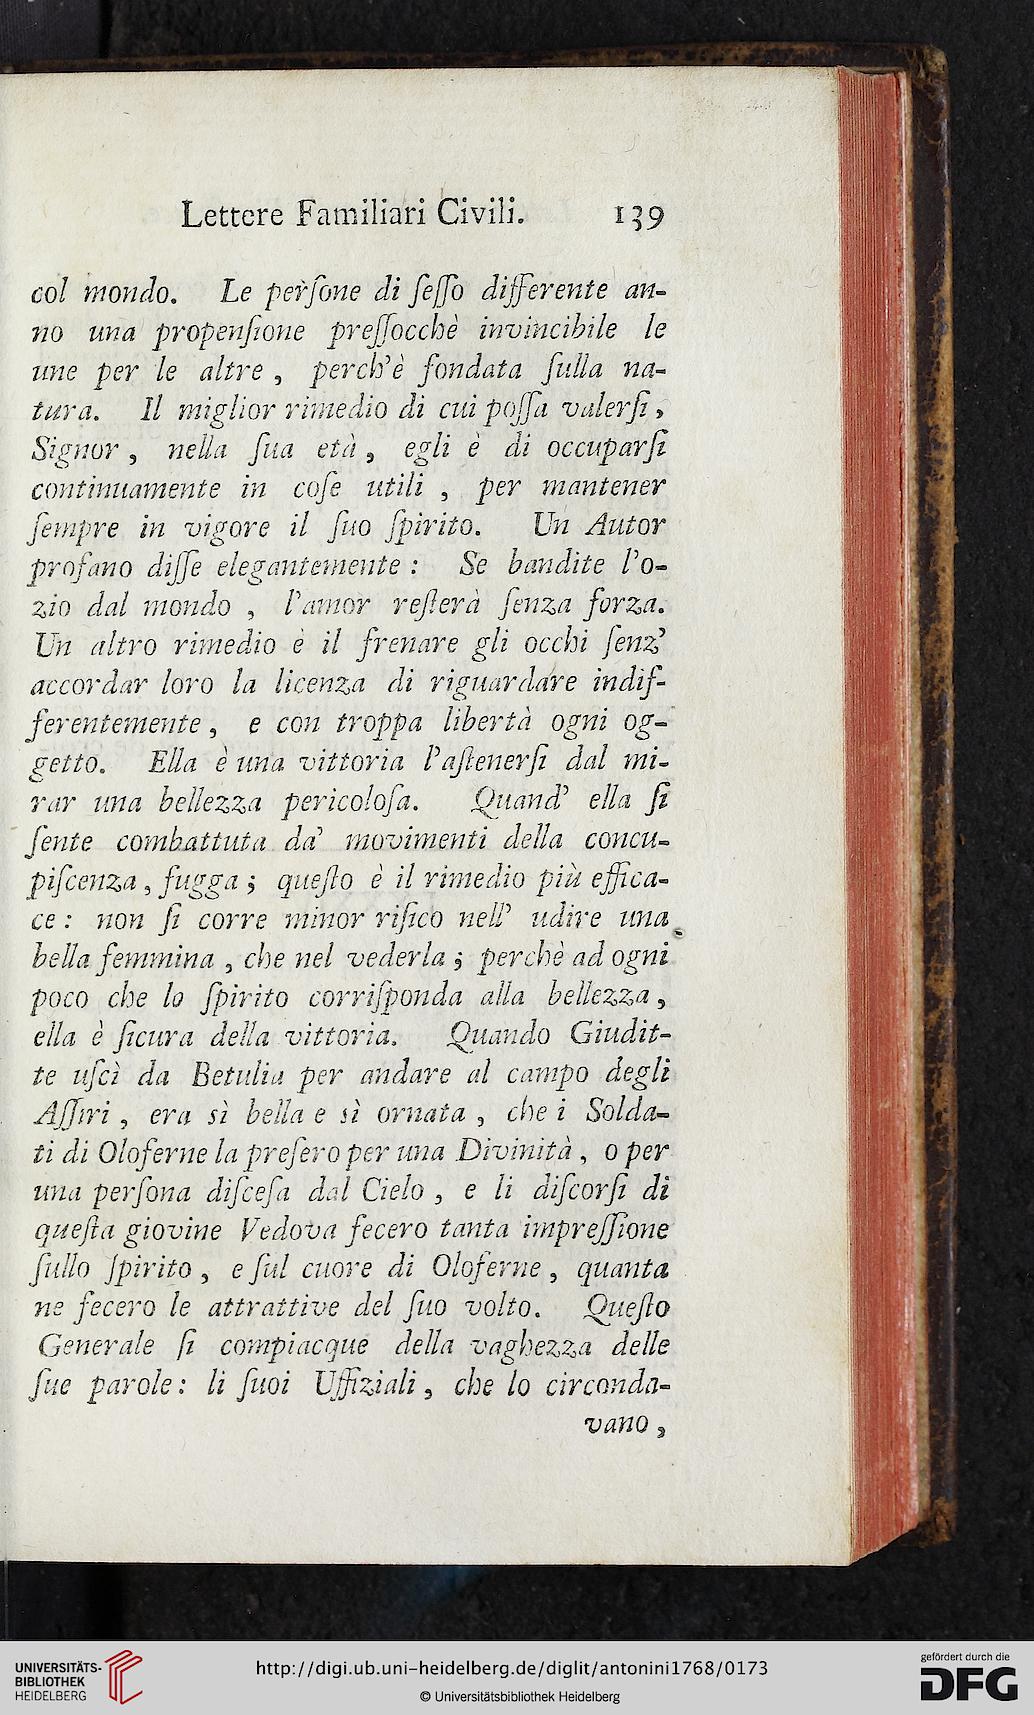 Lettere Familiari Civili. 139
col mondo. Le perſone di ſeſſo differente an-
no una propenſione preſſocchè invincibile le
une per le altre, perch'è fondata ſulla na-
tura. Il miglior rimedio di cui poſſa valerſi,
Signor, nella ſua età, egli è di occuparſi
continuamente in coſe utili, per mantener
ſempre in vigore il ſuo ſpirito. Un Autor
profano diſſe elegantemente: Se bandite l'o-
zio dal mondo, l'amor reſterà ſenza forza.
Un altro rimedio è il frenare gli occhi ſenz'
accordar loro la licenza di riguardare indif-
ferentemente, e con troppa libertà ogni og-
getto. Ella è una vittoria l'aſtenerſi dal mi-
rar una bellezza pericoloſa. Quand' ella ſi
ſente combattuta da' movimenti della concu-
piſcenza, fugga; queſto è il rimedio più effica-
ce: non ſi corre minor riſico nell' udire una
bella femmina, che nel vederla; perchè ad ogni
poco che lo ſpirito corriſponda alla bellezza,
ella è ſicura della vittoria. Quando Giudit-
te uſcì da Betulia per andare al campo degli
Aſſiri, era sì bella e sì ornata, che i Solda-
ti di Oloferne la preſero per una Divinità, o per
una perſona diſceſa dal Cielo, e li diſcorſi di
queſta giovine Vedova fecero tanta impreſſione
ſullo ſpirito, e ſul cuore di Oloferne, quanta
ne fecero le attrattive del ſuo volto. Queſto
Generale ſi compiacque della vaghezza delle
ſue parole: li ſuoi Uffiziali, che lo circonda-
vano,
UNIVERSITÄTS-
BIBLIOTHEK
HEIDELBERG
http://digi.ub.uni-heidelberg.de/diglit/antonini1768/0173
© Universitätsbibliothek Heidelberg
gefördert durch die
DFG